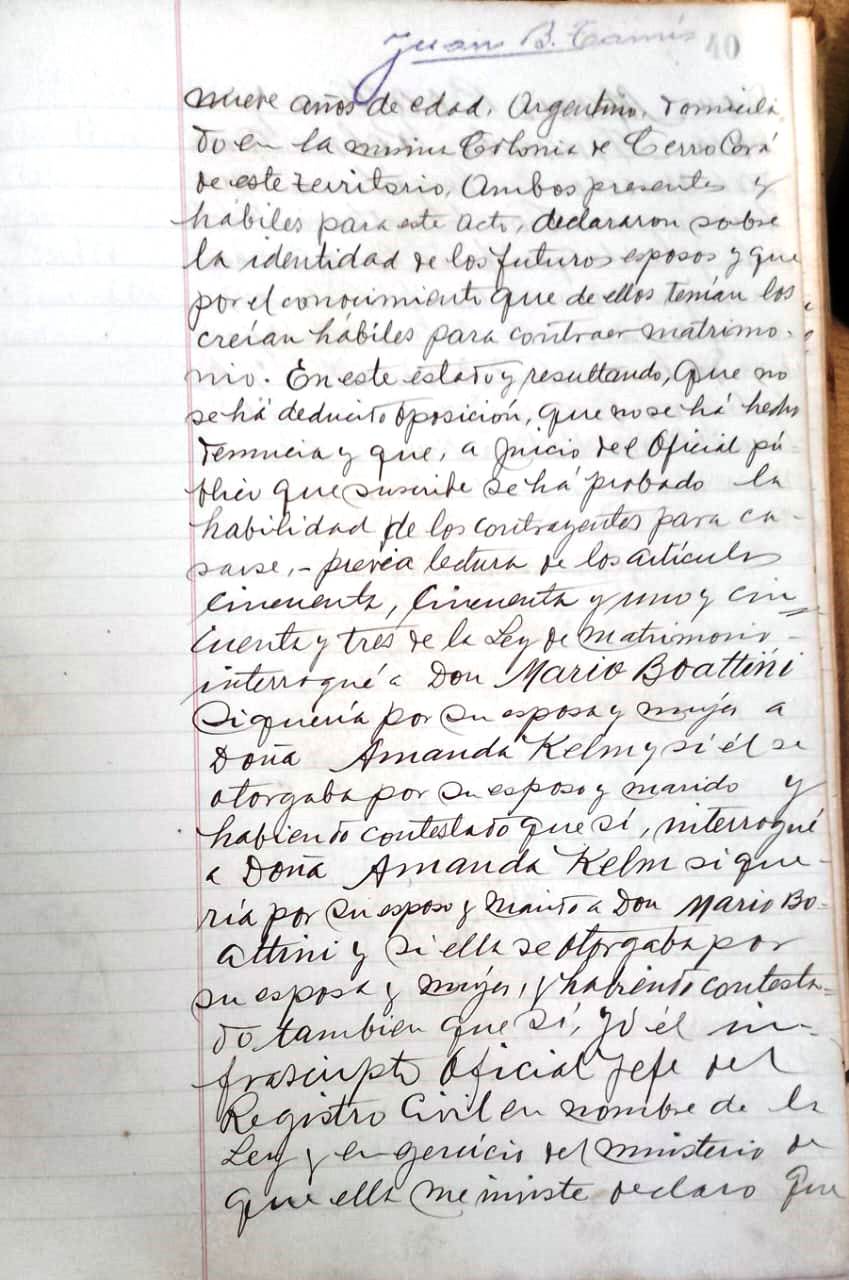 Juan B. 40
nueve años de edad, Argentino, domicilia
do en la misma Colonia de Cerro Corá
de este Territorio. Ambos presentes y
hábiles para este acto, declararon sobre
la identidad de los futuros esposos y que
por el conocimiento que de ellos tenían los
creían hábiles para contraer matrimo-
nio. En este estado y resultando, que no
se há deducido oposición, que no se há hecho
denuncia y que, a juicio del Oficial pú-
blico que suscribe se há probado la
habilidad de los contrayentes para ca-
sarse, - previa lectura de los artículos
cincuenta, cincuenta y uno y cin=
cuenta y tres de la Ley de Matrimonio -
interrogué a Don Mario Boattini
si quería por su esposa y mujer a
Doña Amanda Kelm y si él se
otorgaba por su esposo y marido y
habiendo contestado que sí, interrogué
a Doña Amanda Kelm si que-
ría por su esposo y marido a Don Mario Bo-
attini y si ella se otorgaba por
su esposa y mujer, y habiendo contesta-
do tambien que sí, yó él in-
frascripto Oficial Jefe del
Registro Civil en nombre de la
Ley y en gercicio del ministerio de
que ella me inviste declaro que